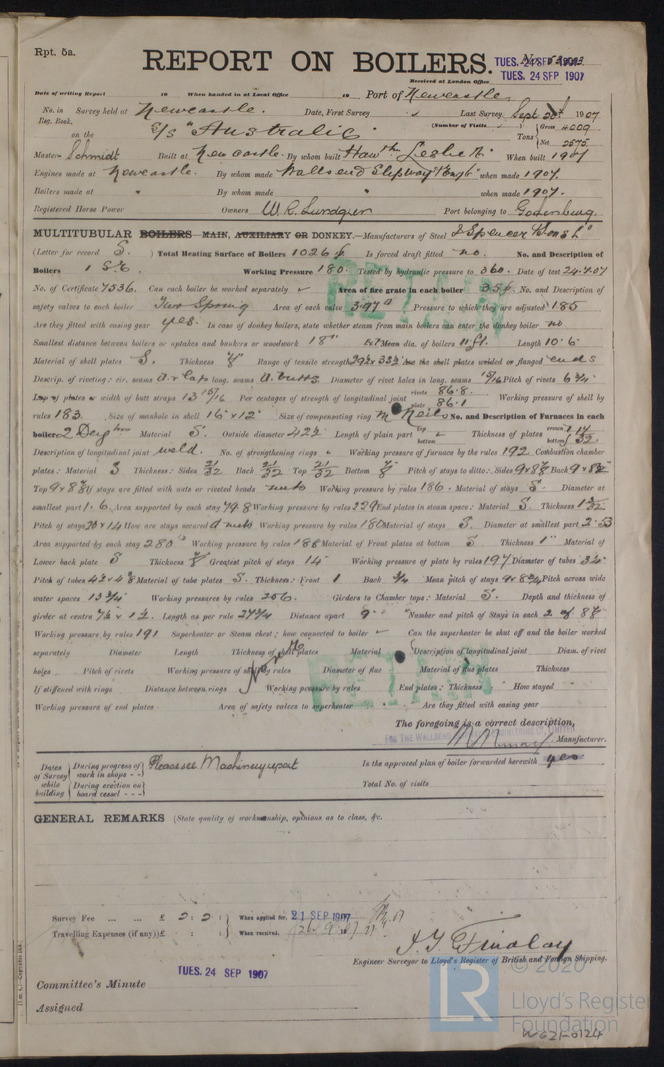 Rpt. 5a.
REPORT ON BOILERS.
TUES. 24 SEP 1907
TUES. 24 SEP 1907
Received at London Office
Date of writing Report 19 When handed in at Local Office 19 Port of Newcastle
No. in Survey held at Newcastle. Date, First Survey Last Survey Sept 1907
Reg. Book. (Number of Visits )
on the S/S "Australic" Tons { Gross 4009 Net 2575
Master Schmidt Built at Newcastle. By whom built Hawth Leslie & When built 1907
Engines made at Newcastle. By whom made Wallsend Slipway & Engr when made 1907.
Boilers made at " By whom made " when made 1907.
Registered Horse Power Owners W. R. Lundgren Port belonging to Gothenburg.
MULTITUBULAR BOILERS — MAIN, AUXILIARY OR DONKEY.—Manufacturers of Steel J Spencer & Sons Ld
(Letter for record S. ) Total Heating Surface of Boilers 1026 Is forced draft fitted no. No. and Description of
Boilers 1 S.E. Working Pressure 180. Tested by hydraulic pressure to 360. Date of test 24.7.07
No. of Certificate 7536. Can each boiler be worked separately Area of fire grate in each boiler 35 No. and Description of
safety valves to each boiler Two Spring Area of each valve 3.97 Pressure to which they are adjusted 185
Are they fitted with easing gear yes. In case of donkey boilers, state whether steam from main boilers can enter the donkey boiler no
Smallest distance between boilers or uptakes and bunkers or woodwork 18" Mean dia. of boilers 11 ft. Length 10'.6
Material of shell plates S. Thickness Range of tensile strength Are the shell plates welded or flanged ends
Descrip. of riveting: cir. seams d.r. laps long. seams d. butts Diameter of rivet holes in long. seams 15/16 Pitch of rivets 6 3/4
Lap of plates or width of butt straps 13 15/16 Per centages of strength of longitudinal joint rivets 86.8. plate 86.1 Working pressure of shell by
rules 183. Size of manhole in shell 16" x 12" Size of compensating ring McNeils No. and Description of Furnaces in each
boiler 2 Deighton Material S. Outside diameter 42 1/2 Length of plain part top bottom Thickness of plates crown bottom
Description of longitudinal joint weld. No. of strengthening rings Working pressure of furnace by the rules 192. Combustion chamber
plates: Material S Thickness: Sides 21/32 Back 21/32 Top 21/32 Bottom Pitch of stays to ditto: Sides Back
Top If stays are fitted with nuts or riveted heads nuts Working pressure by rules 186. Material of stays S. Diameter at
smallest part 1.6 Area supported by each stay 79.8 Working pressure by rules End plates in steam space: Material S. Thickness
Pitch of stays 20 x 14 How are stays secured d nuts Working pressure by rules 180 Material of stays S. Diameter at smallest part 2.53
Area supported by each stay 280 Working pressure by rules 188 Material of Front plates at bottom S Thickness 1" Material of
Lower back plate S Thickness Greatest pitch of stays 14 Working pressure of plate by rules 197 Diameter of tubes 3 1/4
Pitch of tubes Material of tube plates S. Thickness: Front 1 Back 3/4 Mean pitch of stays Pitch across wide
water spaces 13 3/4 Working pressures by rules 206. Girders to Chamber tops: Material S. Depth and thickness of
girder at centre Length as per rule 27 3/4 Distance apart 9 Number and pitch of Stays in each 2 of 8
Working pressure by rules 191 Superheater or Steam chest; how connected to boiler Can the superheater be shut off and the boiler worked
separately Diameter Length Thickness of shell plates Material Description of longitudinal joint Diam. of rivet
holes Pitch of rivets Working pressure of shell by rules Diameter of flue Material of flue plates Thickness
If stiffened with rings Distance between rings Working pressure by rules End plates: Thickness How stayed
Working pressure of end plates Area of safety valves to superheater Are they fitted with easing gear
The foregoing is a correct description,
Manufacturer.
Dates of Survey while building { During progress of work in shops - - Please see Machinery report Is the approved plan of boiler forwarded herewith yes
During erection on board vessel - - - Total No. of visits
GENERAL REMARKS (State quality of workmanship, opinions as to class, &c.
Survey Fee ... ... £ 2 : 2 : When applied for, 21 SEP 1907
Travelling Expenses (if any) £ : : When received,
Engineer Surveyor to Lloyd's Register of British and Foreign Shipping.
TUES. 24 SEP 1907
Committee's Minute
Assigned
© 2020
LR
Lloyd's Register
Foundation
W621-0124